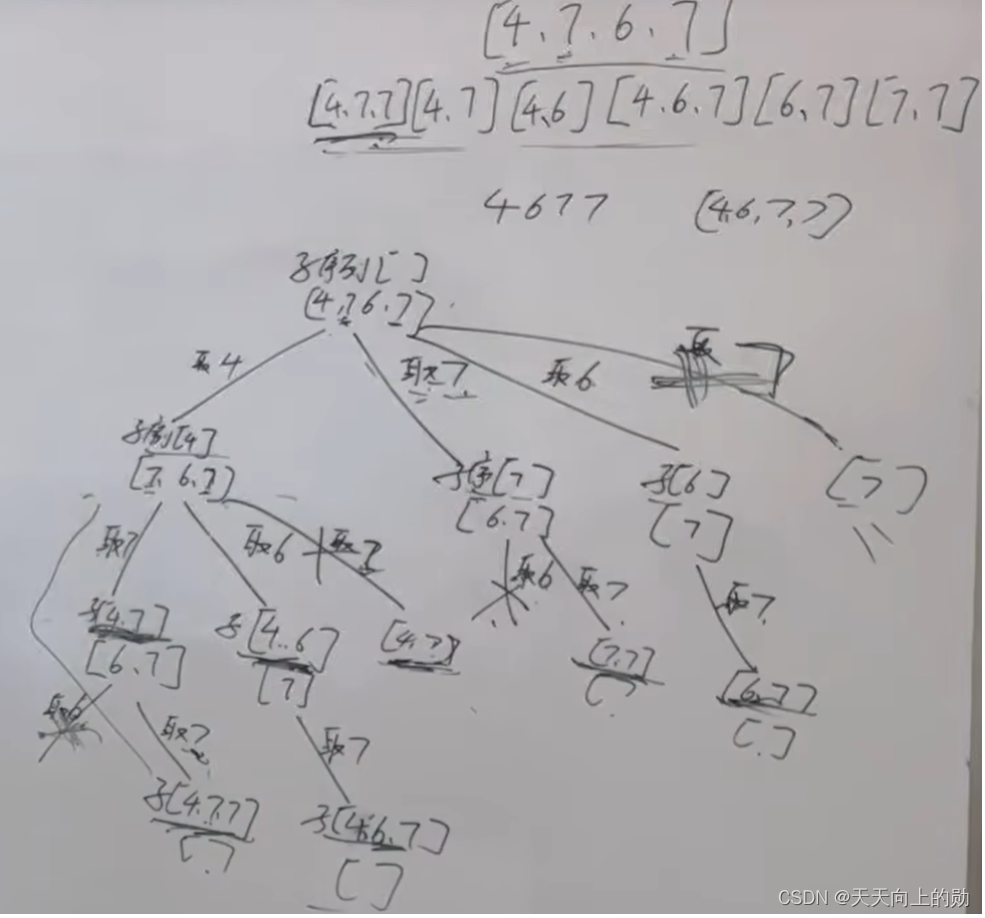 [4、7、6、7]
[4,7,7] [4,7] [4,6] [4,6,7] [6,7] [7,7]
4677 [4,6,7,7]
子序列[ ]
[4,7,6,7]
取4 取7 取6 取
子序列[4]
[7,6,7]
子序[7]
[6,7]
子[6]
[7]
[7]
取7 取6 取7 取6 取7 取7
子[4,7]
[6,7]
子[4,6]
[7]
[4,7]
[7,7]
[ ]
[6,7]
[ ]
取6 取7 取7
子[4,7,7]
[ ]
子[4,6,7]
[ ]
CSDN @天天向上的勋